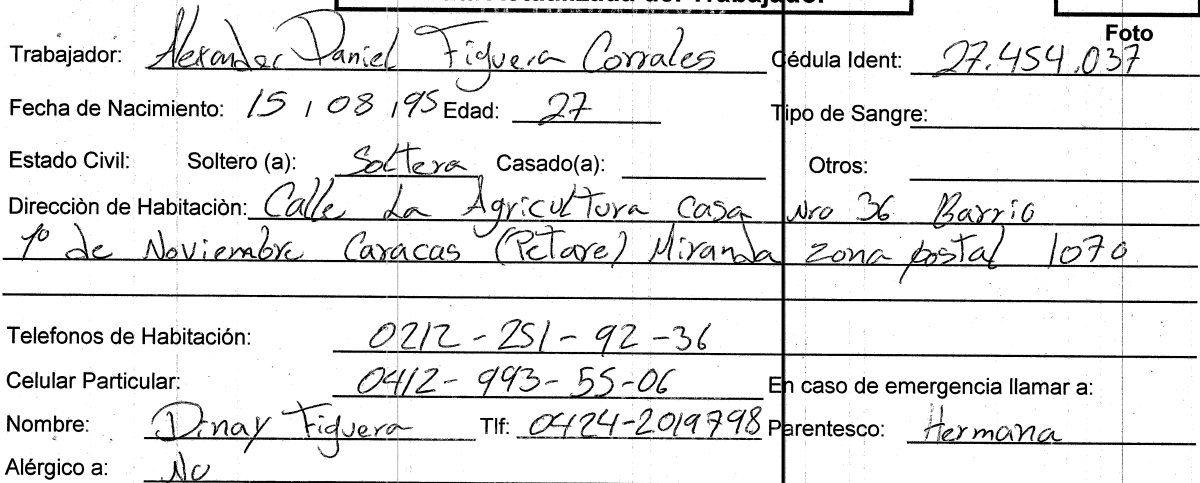 del Trabajador
Foto
Trabajador: Alexander Daniel Figuera Corrales Cédula Ident: 27.454.037
Fecha de Nacimiento: 15 / 08 / 95 Edad: 27 Tipo de Sangre:
Estado Civil: Soltero (a): Soltera Casado(a): Otros:
Direcciòn de Habitaciòn: Calle La Agricultura Casa Nro 36 Barrio
1º de Noviembre Caracas (Petare) Miranda zona postal 1070
Telefonos de Habitación: 0212-251-92-36
Celular Particular: 0412-993-55-06 En caso de emergencia llamar a:
Nombre: Dinay Figuera Tlf: 0424-2019798 Parentesco: Hermana
Alérgico a: No